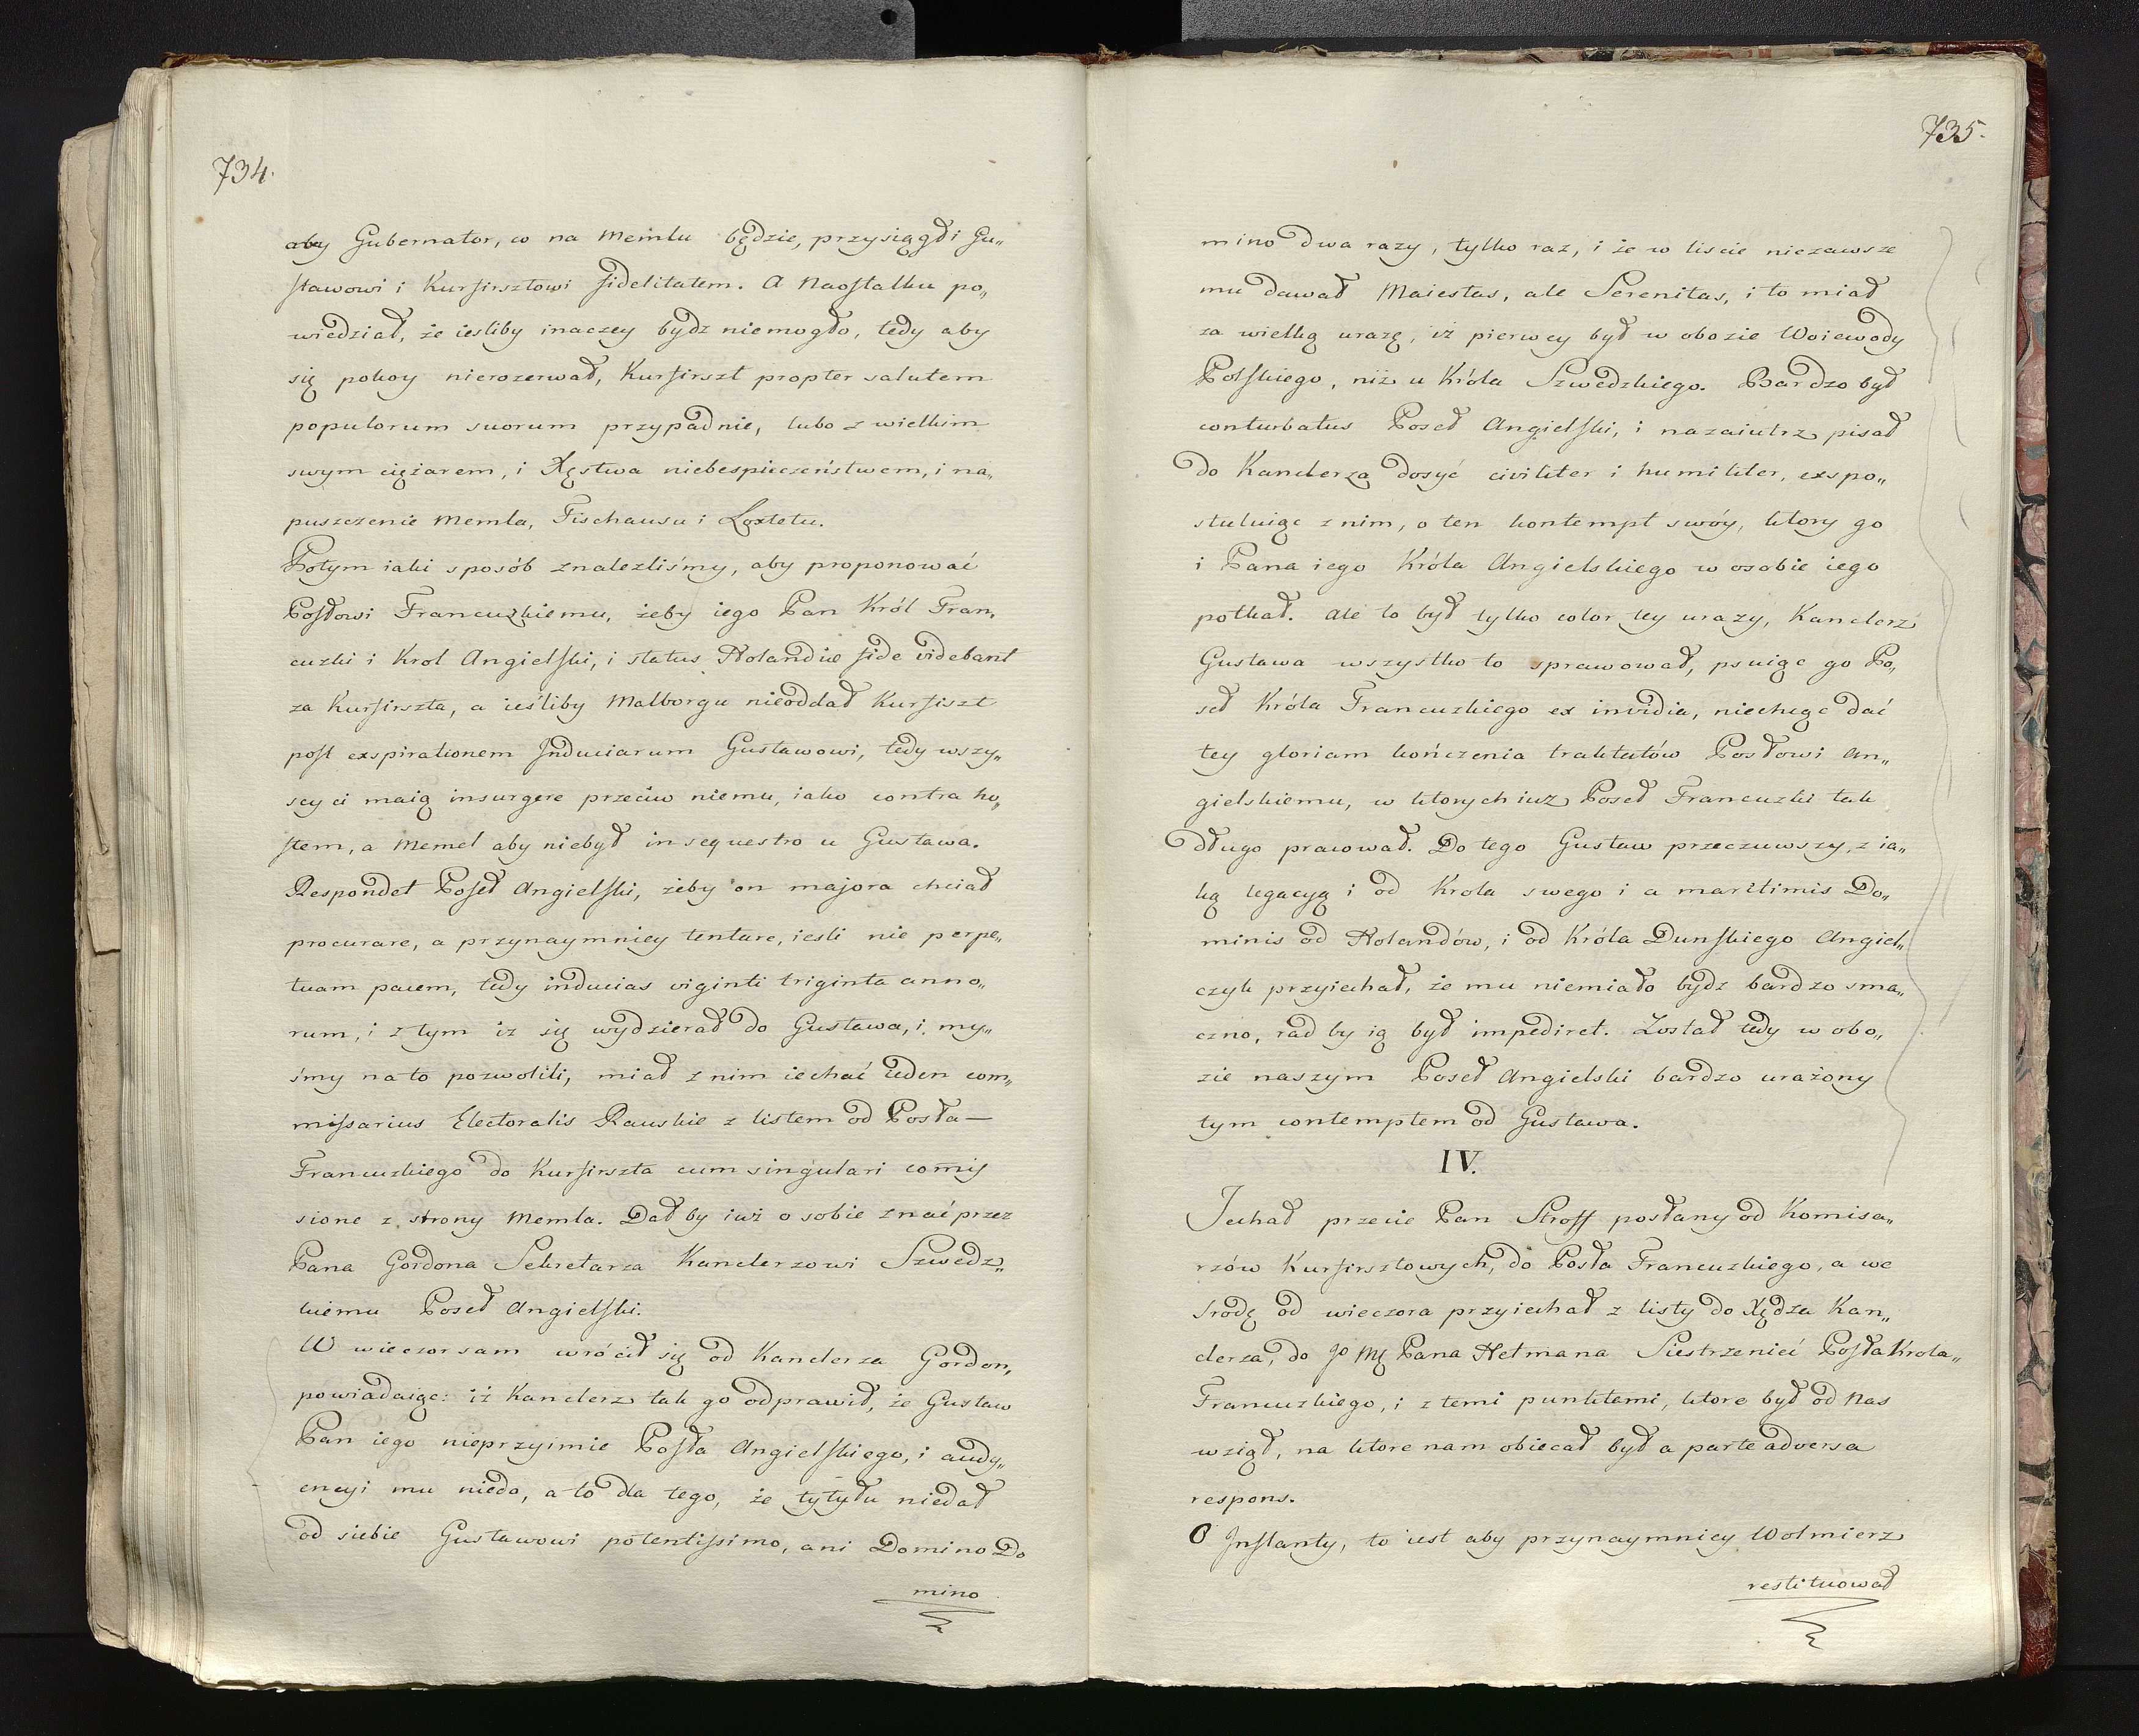 734.
aby Gubernator, co na Memlu będzie, przysiągł i Gu„
stawowi i Kurfirsztowi fidelitatem. A Naostatku po„
wiedział, że iesliby inaczey bydz niemogło, tedy aby
się pokoy nierozerwał, Kurfirszt propter salutem
populorum suorum przypadnie, lubo z wielkim
swym ciężarem, i Xęstwa niebespieczeństwem, i na„
puszczenie Memla, Fischausu i Loxtetu.
Potym iaki sposób znalezliśmy, aby proponować
Posłowi Francuzkiemu, żeby iego Pan Król Fran„
cuzki i Krol Angielski, i status Holandiæ fide videbant
za Kurfirszta, a ieśliby Malborgu nieoddał Kurfiszt
post exspirationem Induciarum Gustawowi, tedy wszy„
scy ci maią insurgere przeciw niemu, iako contra ho„
stem, a Memel aby niebył in sequestro u Gustawa.
Respondet Poseł Angielski, żeby on majora chciał
procurare, a przynaymniey tentare, iesli nie perpe„
tuam pacem, tedy inducias viginti triginta anno„
rum, i z tym iż się wydzierał do Gustawa, i my„
śmy na to pozwolili, miał z nim iechać ieden com„
missarius Electoralis Rauskie z listem od Posła —
Francuzkiego do Kurfirszta cum singulari com̄is
sione z strony Memla. Dał by iuż o sobie znać przez
Pana Gordona Sekretarza Kanclerzowi Szwedz„
kiemu Poseł Angielski.
W wieczor sam wrócił się od Kanclerza Gordon,
powiadaiąc: iż Kanclerz tak go odprawił, że Gustaw
Pan iego nieprzyimie Posła Angielskiego, i audy„
encyi mu nieda, a to dla tego, że tytyłu niedał
od siebie Gustawowi potentissimo, ani Domino Do
mino
735.
mino dwa razy, tylko raz, i że w liscie niezawsze
mu dawał Maiestas, ale Serenitas, i to miał
za wielką urazę, iż pierwey był w obozie Woiewody
Polskiego, niż u Króla Szwedzkiego. Bardzo był
conturbatus Poseł Angielski, i nazaiutrz pisał
do Kanclerza dosyć civiliter i humiliter, expo„
stuluiąc z nim, o ten kontempt swóy, ktory go
i Pana iego Króla Angielskiego w osobie iego
potkał. Ale to był tylko color tey urazy, Kanclerz
Gustawa wszystko to sprawował, psuiąc go Po„
seł Króla Francuzkiego ex invidia, niechcąc dać
tey gloriam kończenia traktatów Posłowi An„
gielskiemu, w ktorych iuż Poseł Francuzki tak
długo pracował. Do tego Gustaw przeczuwszy, z ia„
ką legacyą i od Krola swego i a maritimis Do„
minis od Holandów, i od Króla Dunskiego Angiel„
czyk przyiechał, że mu niemiało bydz bardzo sma„
czno, rad by ią był impediret. Został tedy w obo„
zie naszym Poseł Angielski bardzo urażony
tym contemptem od Gustawa.
IV.
Jechał przecie Pan Stroff posłany od Komisa„
rzów Kurfirsztowych, do Posła Francuzkiego, a we
Srodę od wieczora przyiechał z listy do Xędza Kan„
clerza, do Jo Mę Pana Hetmana Siestrzenici Posła Krola„
Francuzkiego, i z temi punktami, ktore był od Nas
wziął, na ktore nam obiecał był a parte adversa
respons.
O Inflanty, to iest aby przynaymniey Wolmierz
restituował